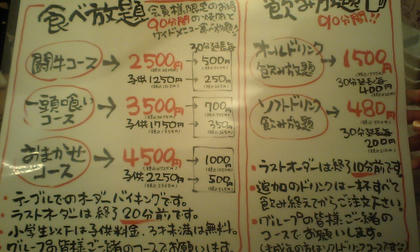 食べ放題
90分間
サイドメニュー
闘牛コース → 2500円
子供1250円
30分延長毎
500円
250円
一頭喰いコース → 3500円
子供1750円
700円
350円
おまかせコース → 4500円
子供2250円
1000円
500円
・テーブルでのオーダーバイキングです。
・ラストオーダーは終了20分前です。
・小学生以下は子供料金、3才未満は無料。
・グループの皆様ご一緒のコースでお願いします。
飲み放題
90分間!!
オールドリンク飲み放題 → 1500円
30分延長毎
400円
ソフトドリンク飲み放題 → 480円
30分延長毎
200円
・ラストオーダーは終了10分前です。
・追加のドリンクは一杯すべて
飲み終えてからご注文下さい。
・グループの皆様ご一緒の
コースでお願いします。